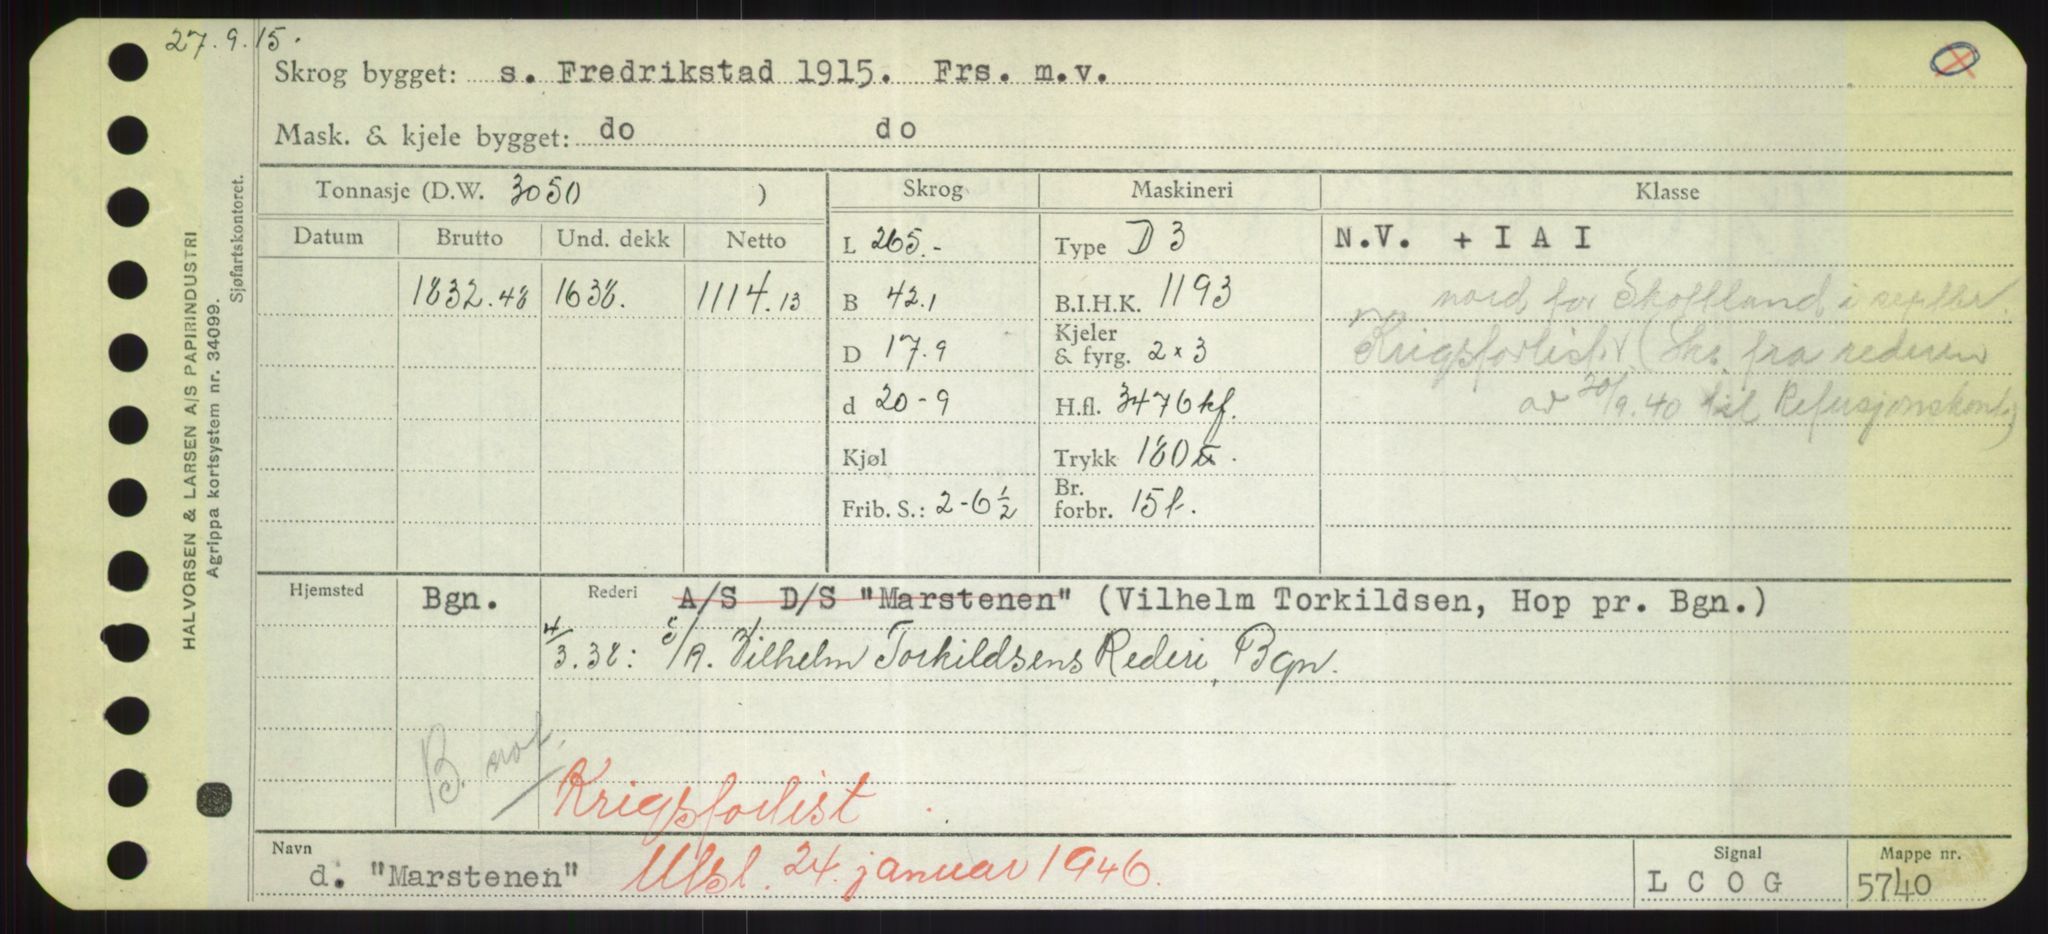 27.9.15.
Skrog bygget: s. Fredrikstad 1915. Frs. m.v.
Mask. & kjele bygget: do do
Tonnasje (D.W. 3050 )
Skrog
Maskineri
Klasse
Datum Brutto Und. dekk Netto
1832.48 1638. 1114.13
L 265.-
B 42.1
D 17.9
d 20-9
Kjøl
Frib. S.: 2-6 1/2
Type D 3
B.I.H.K. 1193
Kjeler
& fyrg. 2 x 3
H.fl. 3476 kf.
Trykk 180
Br.
forbr. 15 t.
N.V. + I A I
nord for Skottland i septbr.
Krigsforlist (Skr. fra rederen
av 30/9.40 til Refusjonskont.)
Hjemsted Bgn. Rederi A/S D/S "Marstenen" (Vilhelm Torkildsen, Hop pr. Bgn.)
4/3.38: S/A. Vilhelm Torkildsens Rederi, Bgn.
B.
Krigsforlist
Navn
d. "Marstenen" Utsl. 24. januar 1946.
Signal
L C O G
Mappe nr.
5740
HALVORSEN & LARSEN A/S PAPIRINDUSTRI
Agrippa kortsystem nr. 34099.
Sjøfartskontoret.